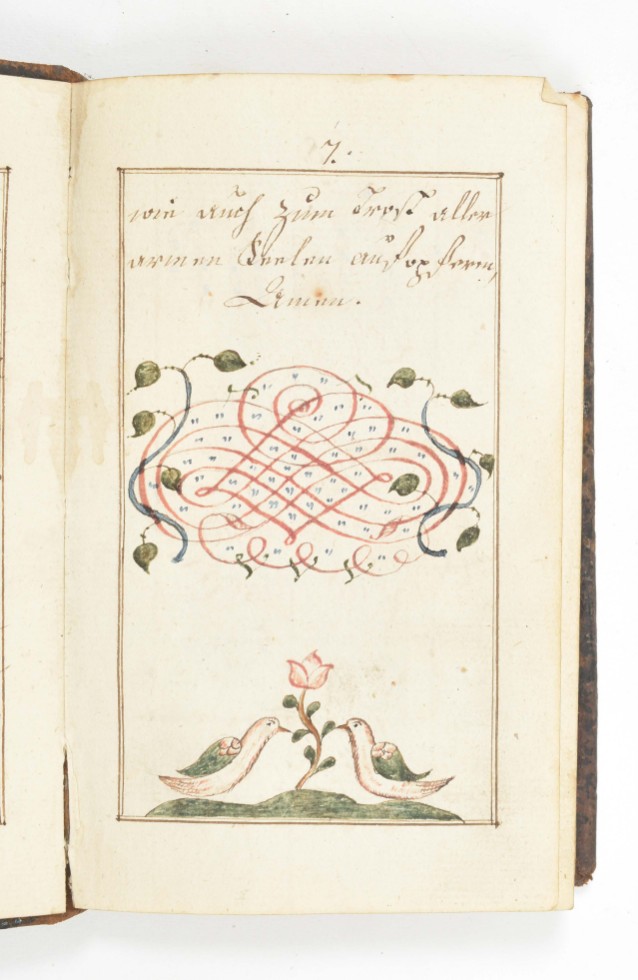 7.
wie auch zum Trost aller
armen Seelen aufopferen,
Amen.